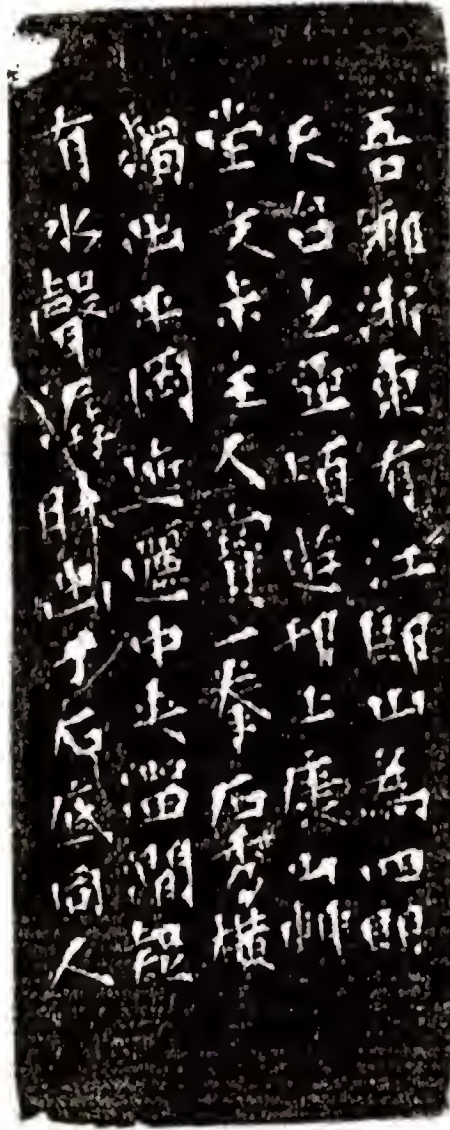 吾鄉浙東有江郎山為四明
天台之亞頃遊邗上康山艸
堂主人寶一拳石橫
獨出來岡迤邐中夾留澗疑
有水聲潺時出于石底同人